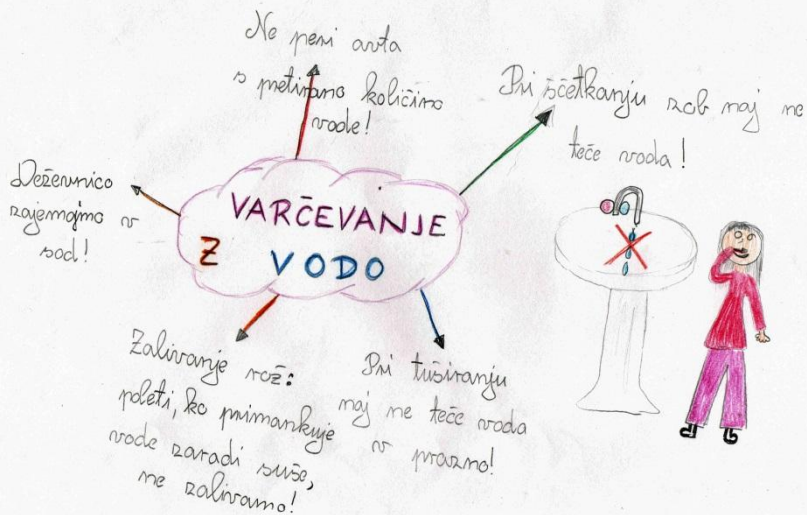 Ne peri avta
s pretirano količino
vode!
Pri ščetkanju zob naj ne
teče voda!
Deževnico
zajemajmo v
sod!
VARČEVANJE
Z VODO
Zalivanje rož:
poleti, ko primankuje
vode zaradi suše,
ne zalivamo!
Pri tuširanju
naj ne teče voda
v prazno!